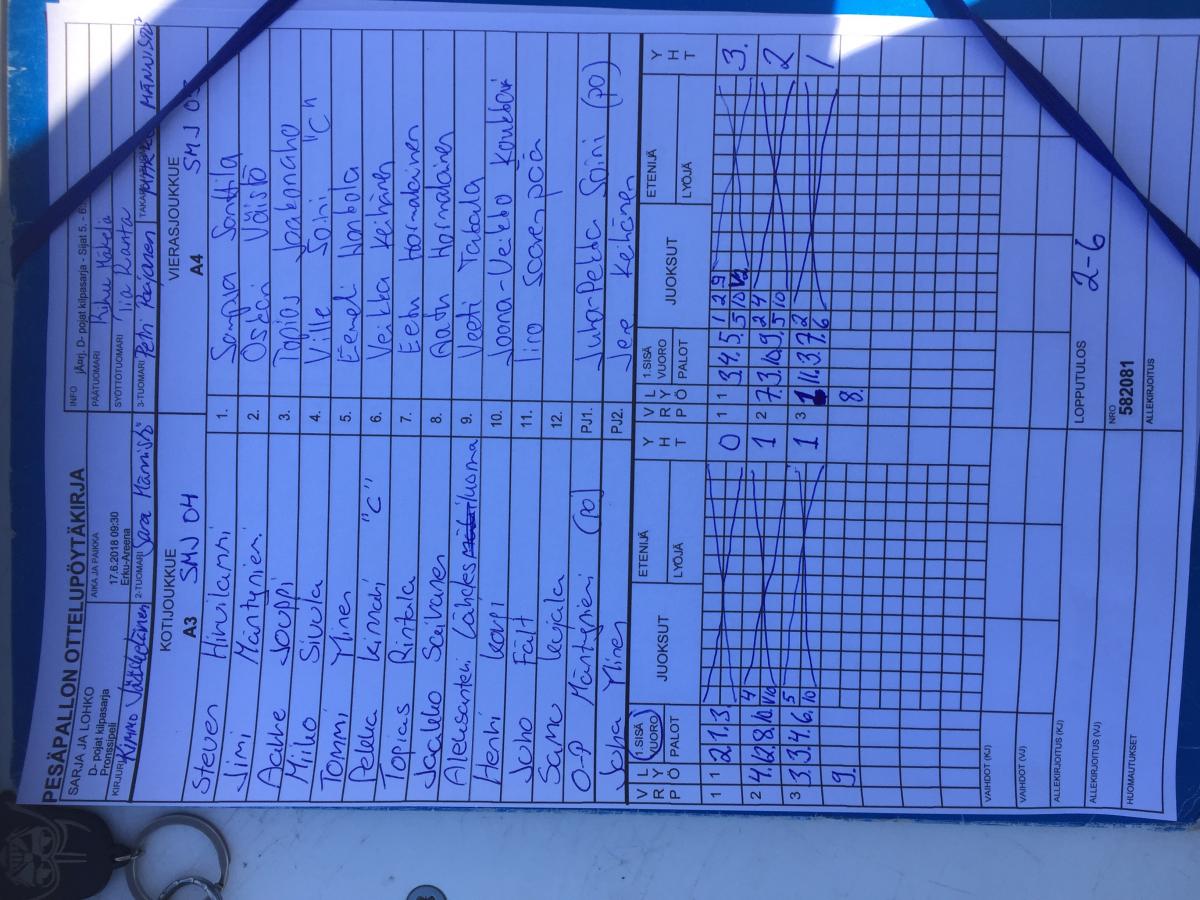 PESÄPALLON OTTELUPÖYTÄKIRJA
SARJA JA LOHKO
D- pojat kilpasarja
Pronssipeli
AIKA JA PAIKKA
17.6.2018 09:30
Erku-Areena
INFO
jÄrj. D- pojat kilpasarja - Sijat 5. - 6.
PÄÄTUOMARI
SYÖTTÖTUOMARI Tiia Ranta
KIRJURI Kimmo
2-TUOMARI Sara Männistö
3-TUOMARI Petri Reijonen
MÄNNISTÖ
KOTIJOUKKUE
A3 SMJ OH
VIERASJOUKKUE
A4 SMJ OJ
Steven Hinvilammi 1. Samppa Santtila
Jimi Mäntynien 2. Oskari Väistö
Aatte Jouppi 3. Topias Jaakonaho
Miko Sivula 4. Ville Soini "C"
Tommi Ylinen 5. Eemeli Honkola
Pekka Kinnari "C" 6. Veikka Keihänen
Topias Rintala 7. Eetu Hormalainen
Jaakko Saivanen 8. Aatu Hormalainen
Aleksanteri Lähdesluoma 9. Veeti Takala
Henri Koupi 10. Joona-Veikko Koukkari
Juho Fält 11. Iiro Saarenpää
Samu Leijala 12.
O-P Mäntynieni (po) PJ1. Juha-Pekka Soini (po)
Juha Ylinen PJ2. Jere Keihänen
V R P
L Y Ö
1.SISÄ
VUORO
PALOT
JUOKSUT
ETENIJÄ
LYÖJÄ
Y H T
V R P
L Y Ö
1.SISÄ
VUORO
PALOT
JUOKSUT
ETENIJÄ
LYÖJÄ
Y H T
1 1 2.1.3. 0 1 1 3.4.5. 1 2 9 3.
5 10
2 4.6.8.10. 4 1 2 7.3.10.9. 2 4 2
5 10
3 3.3.4.6. 5 1 3 1 11.3.7. 2 1
10 6
9. 8.
VAIHDOT (KJ)
VAIHDOT (VJ)
ALLEKIRJOITUS (KJ)
LOPPUTULOS 2-6
ALLEKIRJOITUS (VJ)
NRO
582081
HUOMAUTUKSET
ALLEKIRJOITUS